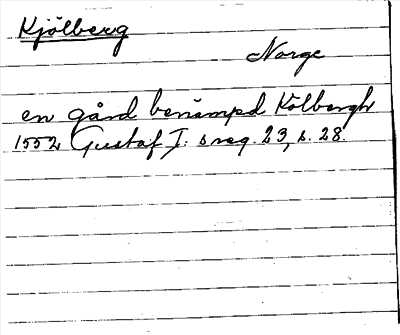 Kjölberg
Norge
en gård benämpd Kölbergh
1552 Gustaf I: s reg. 23, s. 28.